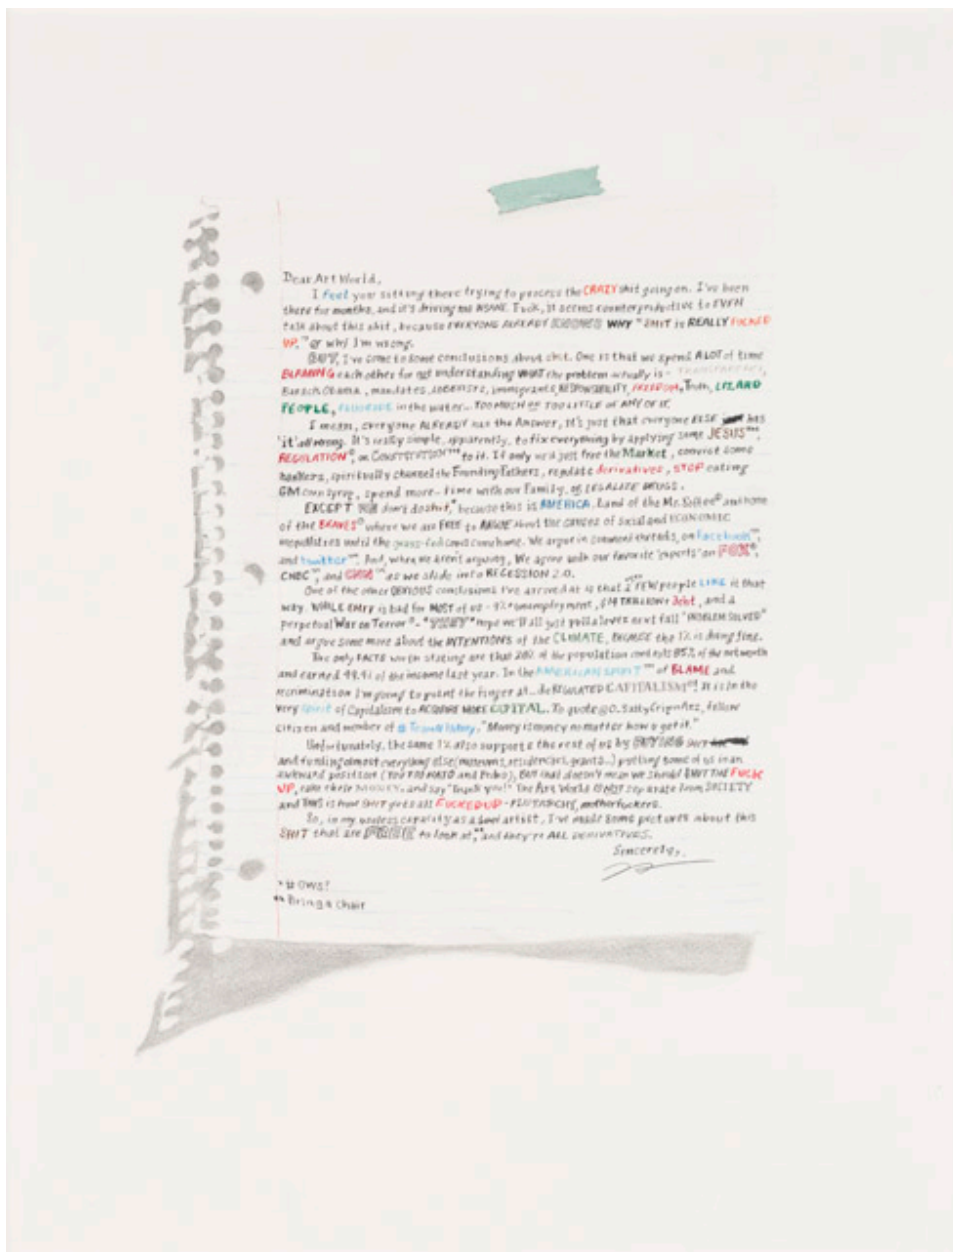 Dear Art World,
I feel you sitting there trying to process the CRAZY shit going on. I've been
there for months, and it's driving me INSANE. Fuck, it seems counterproductive to EVEN
talk about this shit, because EVERYONE ALREADY KNOWS WHY "SHIT is REALLY FUCKED
UP," or why I'm wrong.
BUT, I've come to some conclusions about shit. One is that we spend A LOT of time
BLAMING each other for not understanding WHAT the problem actually is - TRANSPARENCY,
Barack Obama, mandates, immigrants, RESPONSIBILITY, FREEDOM, Them, LIZARD
PEOPLE, FLUORIDE in the water... TOO MUCH OF TOO LITTLE OF ANY OF IT.
I mean, everyone ALREADY has the Answer, it's just that everyone ELSE has
'it' all wrong. It's really simple, apparently, to fix everything by applying some JESUS™,
REGULATION©, or CONSTITUTION™ to it. If only we'd just free the Market, convict some
bankers, spiritually channel the Founding Fathers, regulate derivatives, STOP eating
GM corn syrup, spend more time with our Family, or LEGALIZE DRUGS.
EXCEPT don't do shit,* because this is AMERICA. Land of the Mr. Softee® and home
of the BRAVES® where we are FREE to ARGUE about the causes of social and ECONOMIC
inequalities until the grass-fed cows come home. We argue in comment threads, on facebook™,
and twitter™. And, when we aren't arguing, We agree with our favorite 'experts' on FOX®,
CNBC™, and CNN™ as we slide into RECESSION 2.0.
One of the other OBVIOUS conclusions I've arrived at is that a FEW people LIKE it that
way. WHILE it is bad for MOST of us - 9% unemployment, $14 TRILLION+ debt, and a
perpetual War on Terror® - hope we'll all just pull a lever next fall "PROBLEM SOLVED"
and argue some more about the INTENTIONS of the CLIMATE, BECAUSE the 1% is doing fine.
The only FACTS worth stating are that 20% of the population controls 85% of the net worth
and earned 49.4% of the income last year. In the AMERICAN SPIRIT™ of BLAME and
recrimination I'm going to point the finger at... deREGULATED CAPITALISM! It is in the
very spirit of Capitalism to ACQUIRE MORE CAPITAL. To quote fellow
citizen and member of "Money is money no matter how u get it."
Unfortunately, the same 1% also supports the rest of us by BUYING SHIT
and funding almost everything else (museums, residencies, grants...) putting some of us in an
awkward position (You and Pablo), BUT that doesn't mean we should SHUT THE FUCK
UP, take these MONEY, and say "Thank you!" The Art World IS NOT separate from SOCIETY
and THIS is how SHIT gets all FUCKED UP - motherfuckers.
So, in my useless capacity as a artist, I've made some pictures about this
SHIT that are to look at,** and they're ALL DERIVATIVES.
Sincerely,
*#OWS?
**Bring a chair